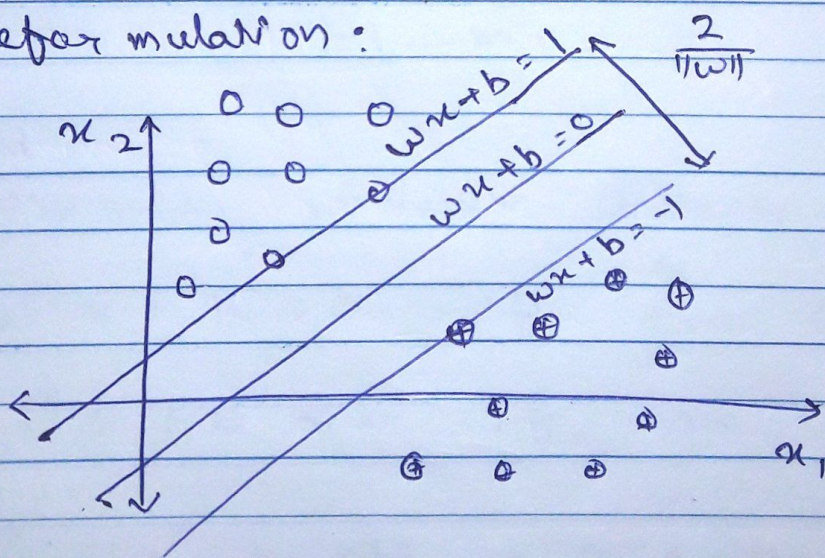 efor mulation :
wx+b=1
2
||w||
x2
wx+b=0
wx+b=-1
x1